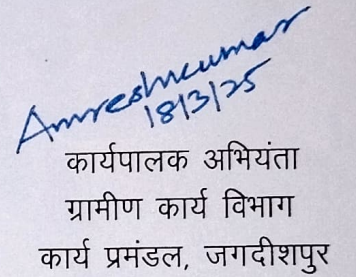 Amresh Kumar
18/3/25
कार्यपालक अभियंता
ग्रामीण कार्य विभाग
कार्य प्रमंडल, जगदीशपुर